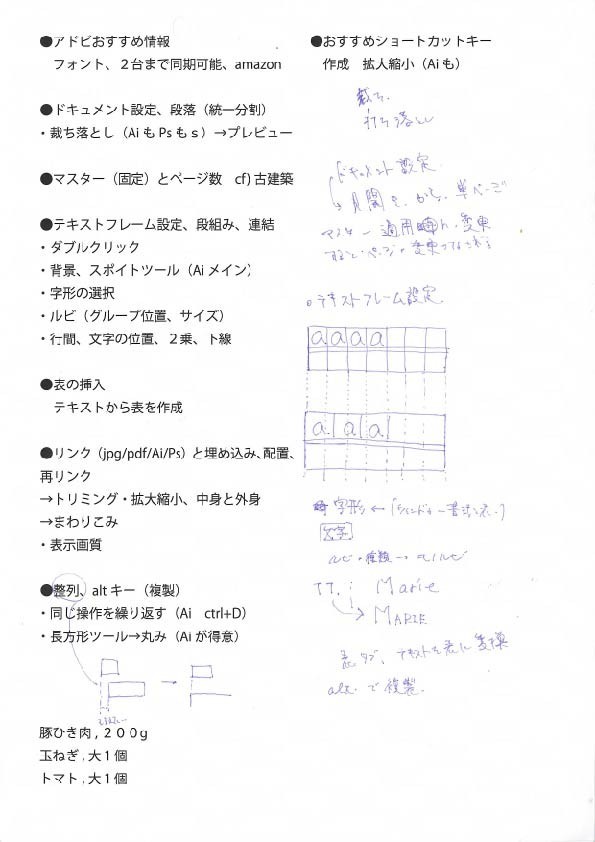 ●アドビおすすめ情報
フォント、２台まで同期可能、amazon
●ドキュメント設定、段落（統一分割）
・裁ち落とし（AiもPsもｓ）→プレビュー
●マスター（固定）とページ数　cf) 古建築
●テキストフレーム設定、段組み、連結
・ダブルクリック
・背景、スポイトツール（Aiメイン）
・字形の選択
・ルビ（グループ位置、サイズ）
・行間、文字の位置、２乗、下線
●表の挿入
テキストから表を作成
●リンク（jpg/pdf/Ai/Ps）と埋め込み、配置、
再リンク
→トリミング・拡大縮小、中身と外身
→まわりこみ
・表示画質
●整列、altキー（複製）
・同じ操作を繰り返す（Ai　ctrl+D）
・長方形ツール→丸み（Aiが得意）
豚ひき肉 , ２００g
玉ねぎ , 大１個
トマト , 大１個
●おすすめショートカットキー
作成　拡人縮小（Aiも）
裁ち
打ち落とし
ドキュメント設定
単ページ
マスター 適用 変更
テキストフレーム設定
a a a a
a a a
字形 ←
文字
ルビ・種類→モノルビ
TT. Marie
MARIE
表 タブ、テキストを表に変換
alt. で複製.